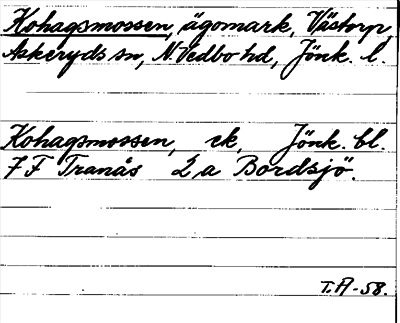 Kohagsmossen, ägomark, Västorp,
Askeryds sn, N. Vedbo hd, Jönk. l.
Kohagsmossen, ek, Jönk. bl.
7 F Tranås 2 a Bordsjö.
T.A-58.